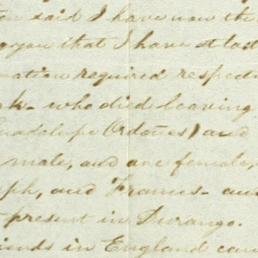 said I have now the
you that I have at last
mation required respecti
k - who died leaving
uadelope Ordoñes) and
male, and one female,
ph, and Frances - and
present in Durango.
iends in England can